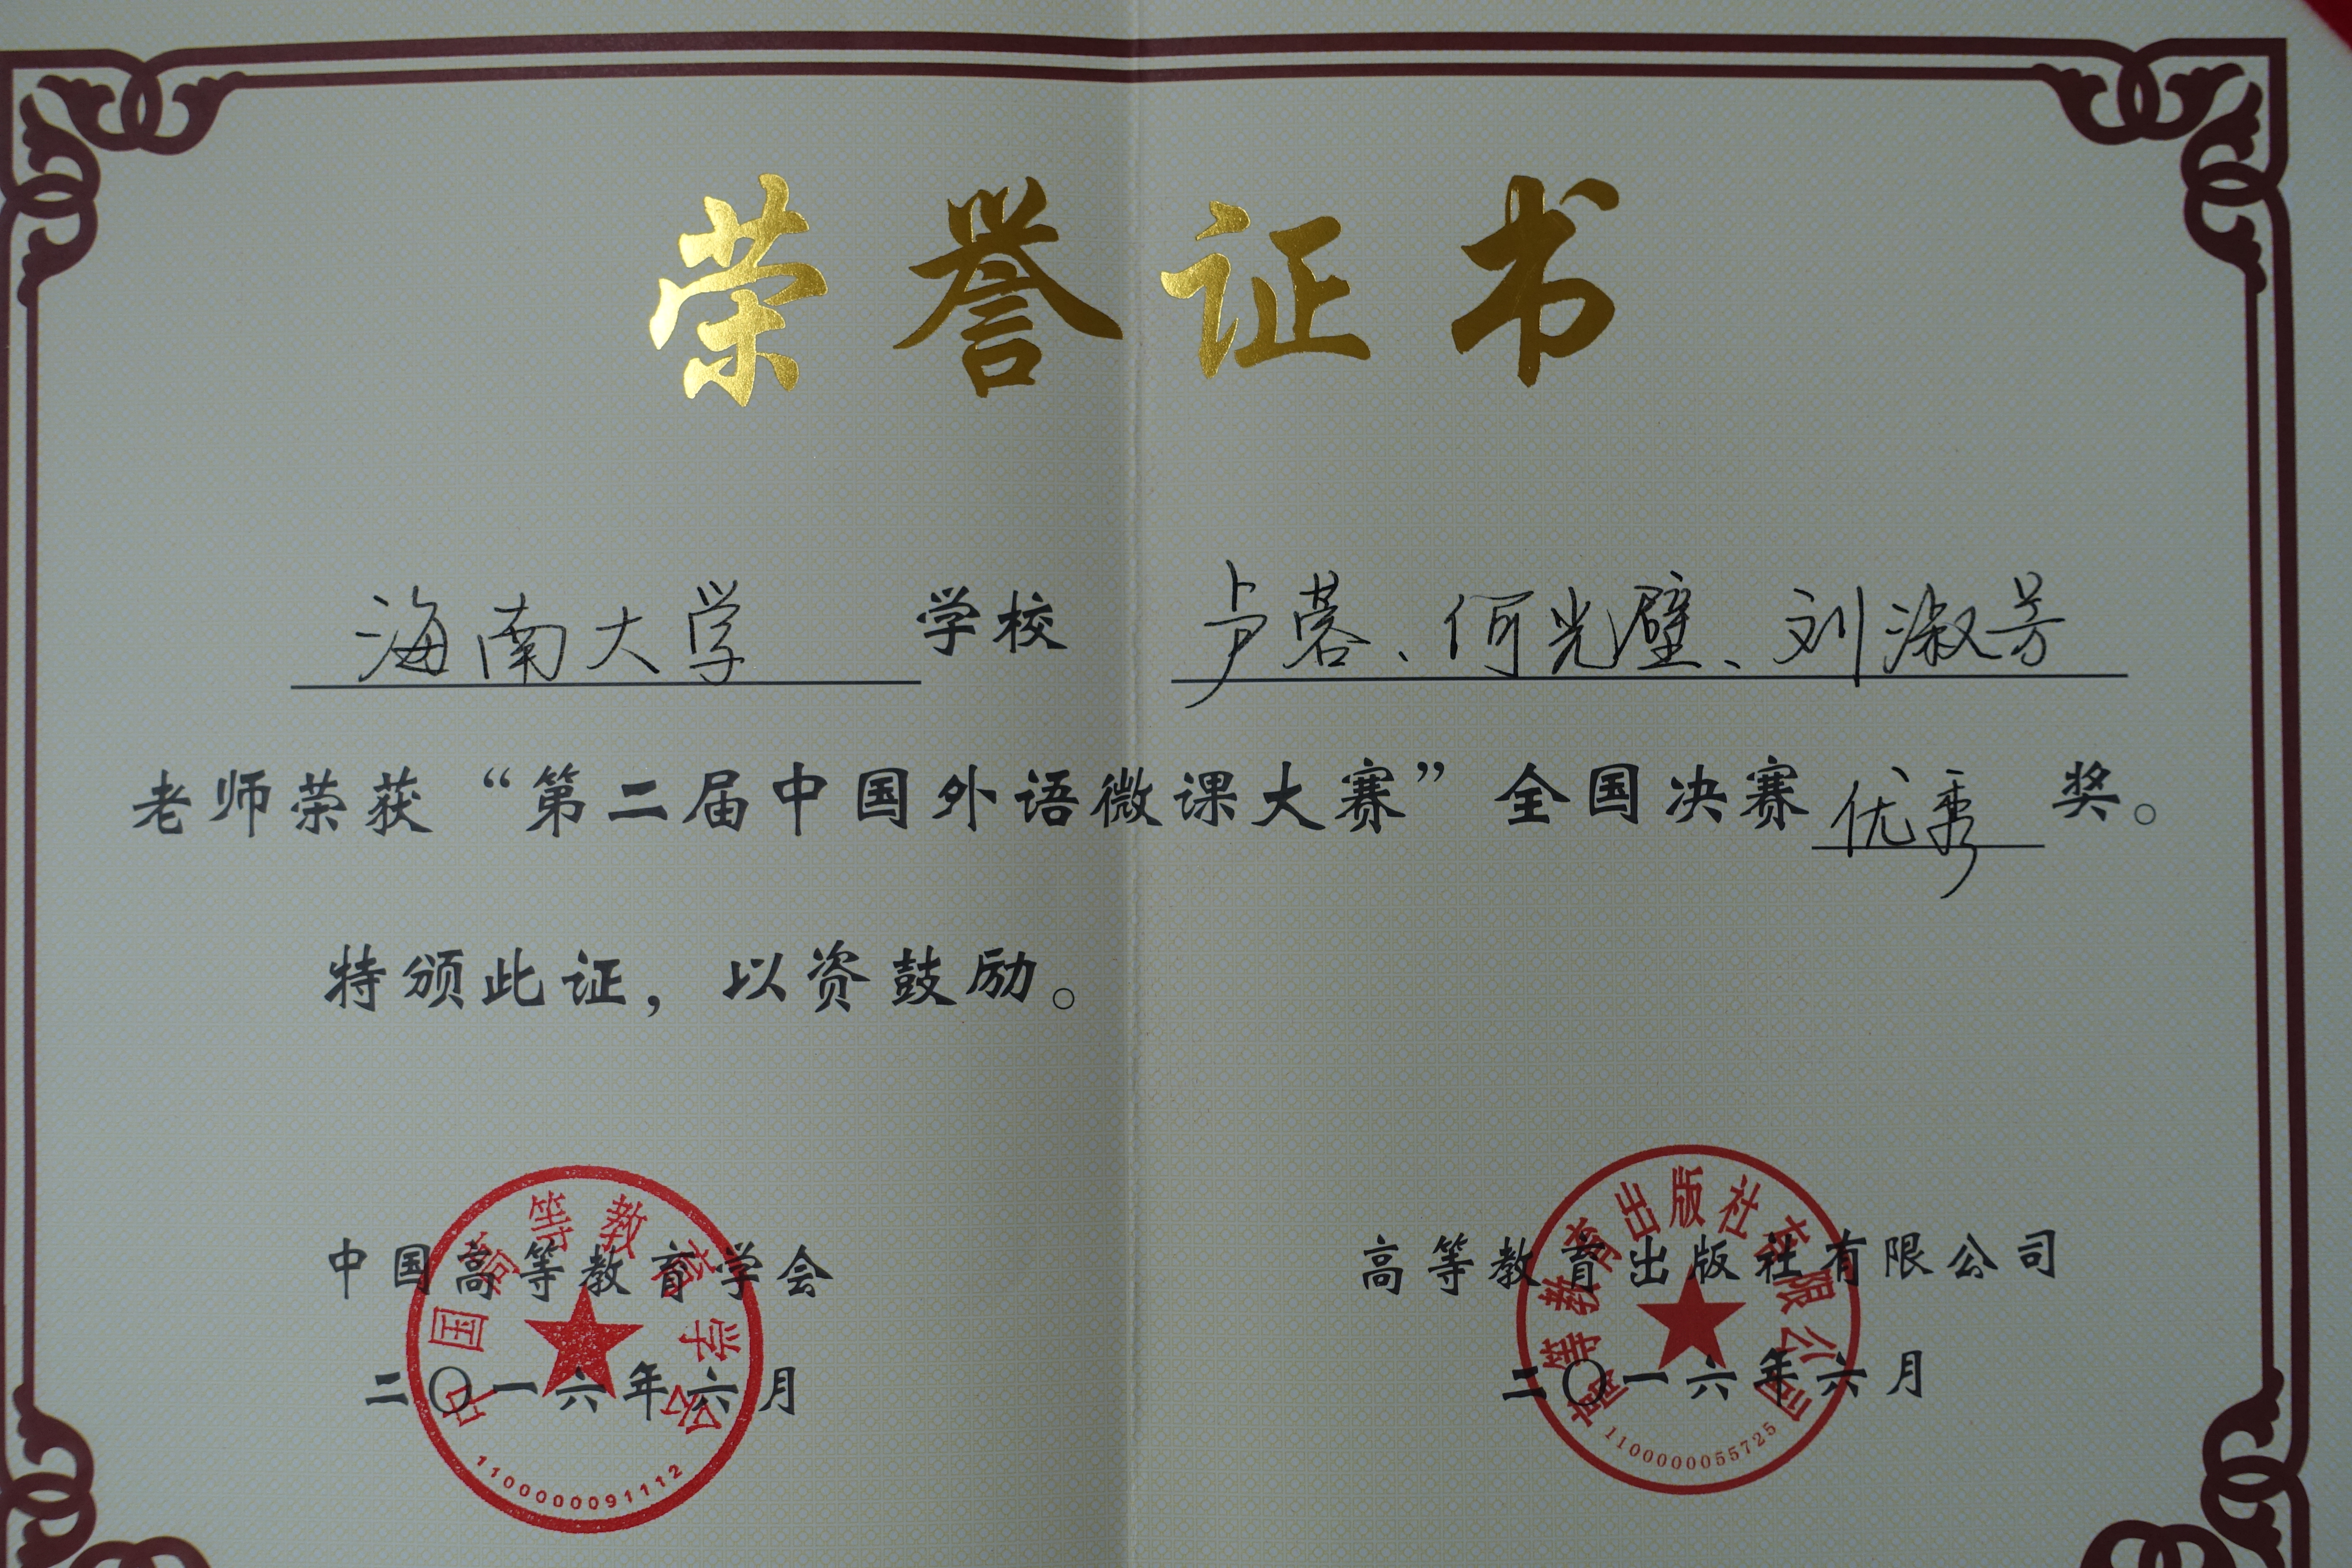 荣誉证书
海南大学 学校 卢蓉、何光壁、刘淑芳
老师荣获“第二届中国外语微课大赛”全国决赛优秀奖。
特颁此证，以资鼓励。
中国高等教育学会
二〇一六年六月
中国高等教育学会
1100000091112
高等教育出版社有限公司
二〇一六年六月
高等教育出版社有限公司
1100000055725